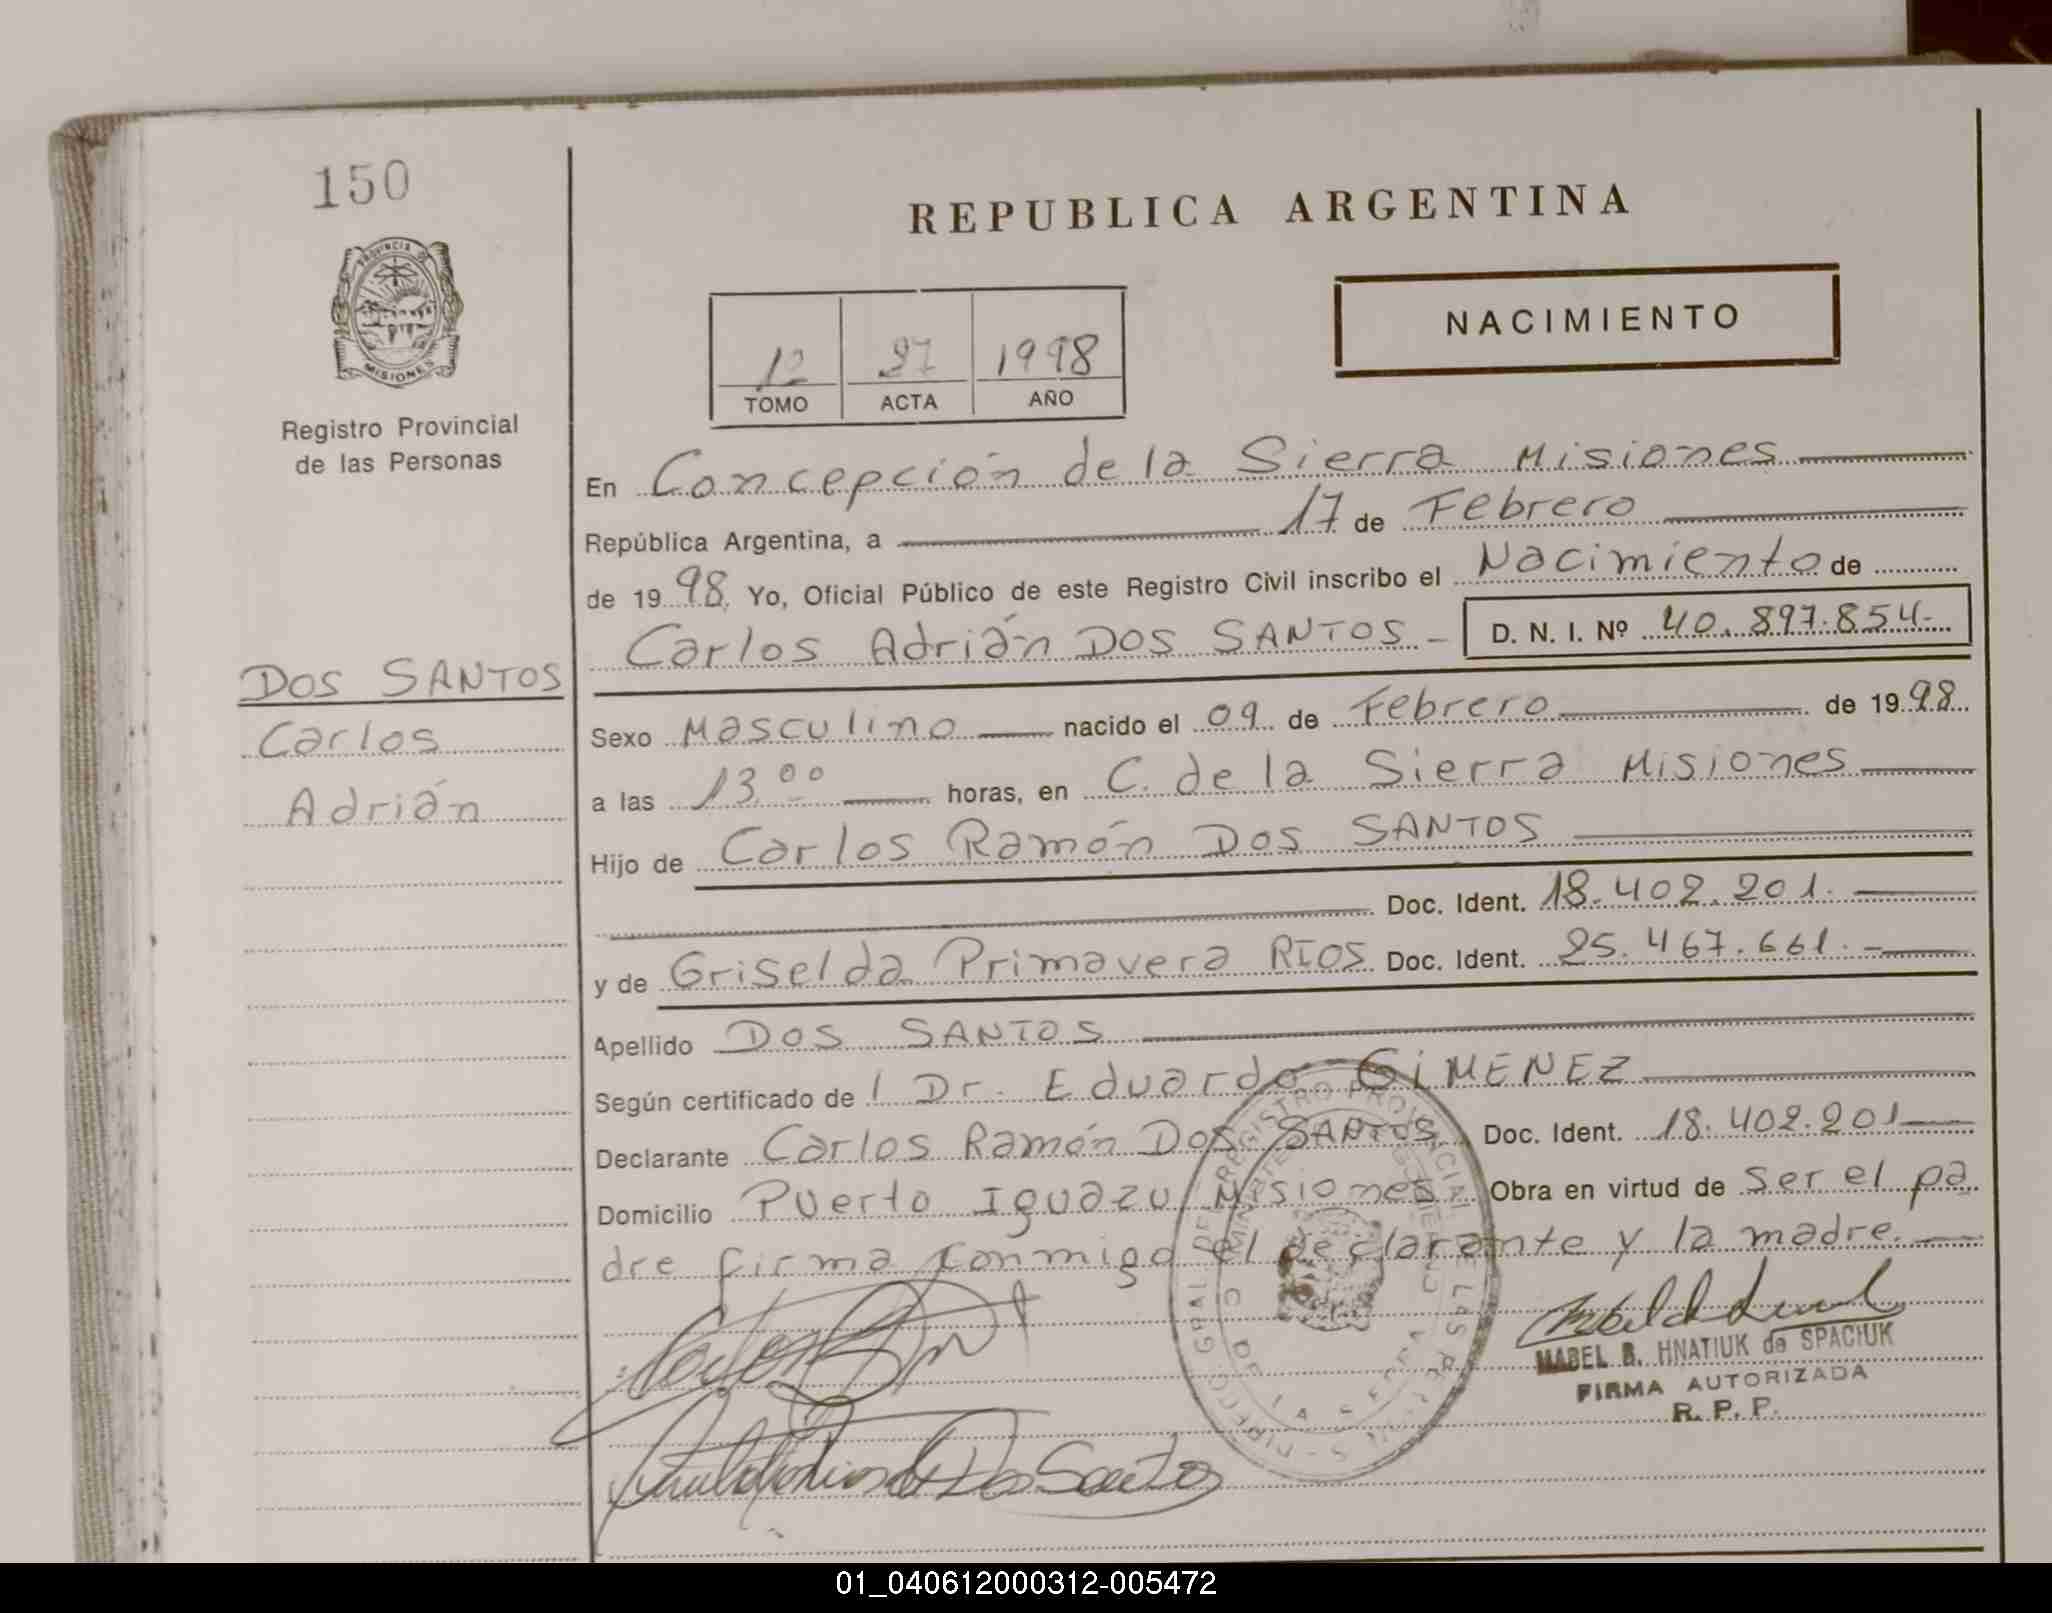 150
PROVINCIA DE
MISIONES
Registro Provincial
de las Personas
DOS SANTOS
Carlos
Adrián
REPUBLICA ARGENTINA
12 27 1998
TOMO ACTA AÑO
NACIMIENTO
En Concepción de la Sierra Misiones
República Argentina, a 17 de Febrero
de 1998. Yo, Oficial Público de este Registro Civil inscribo el Nacimiento de
Carlos Adrián DOS SANTOS - D. N. I. Nº 40.897.854-
Sexo Masculino nacido el 09 de Febrero de 1998
a las 13 00 horas, en C. de la Sierra Misiones
Hijo de Carlos Ramón DOS SANTOS
Doc. Ident. 18.402.201.
y de Griselda Primavera RIOS Doc. Ident. 25.467.661.-
Apellido DOS SANTOS
Según certificado de l Dr. Eduardo GIMENEZ
Declarante Carlos Ramón DOS SANTOS Doc. Ident. 18.402.201
Domicilio Puerto Iguazu Misiones Obra en virtud de ser el pa
dre firma conmigo el declarante y la madre.
MABEL B. HNATIUK de SPACIUK
FIRMA AUTORIZADA
R. P. P.
de Dos Santos
01_040612000312-005472